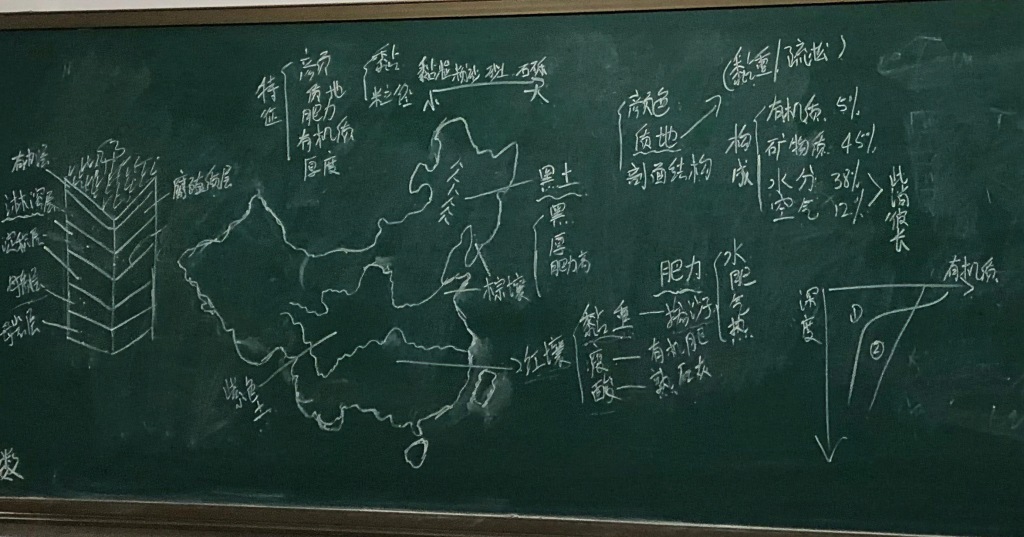 特征
颜
质地
肥力
有机质
厚度
黏
粒径
小
大
颜色
质地
剖面结构
(黏重/疏松)
构成
有机质 5%
矿物质 45%
水分 38%
空气 12%
此消彼长
有机层
腐殖质层
淋溶层
淀积层
母质层
母岩层
黑土
黑
厚
肥力高
棕壤
红壤
黏重
酸
有机肥
肥力
水
肥
气
热
紫色土
有机质
深度
①
②
数